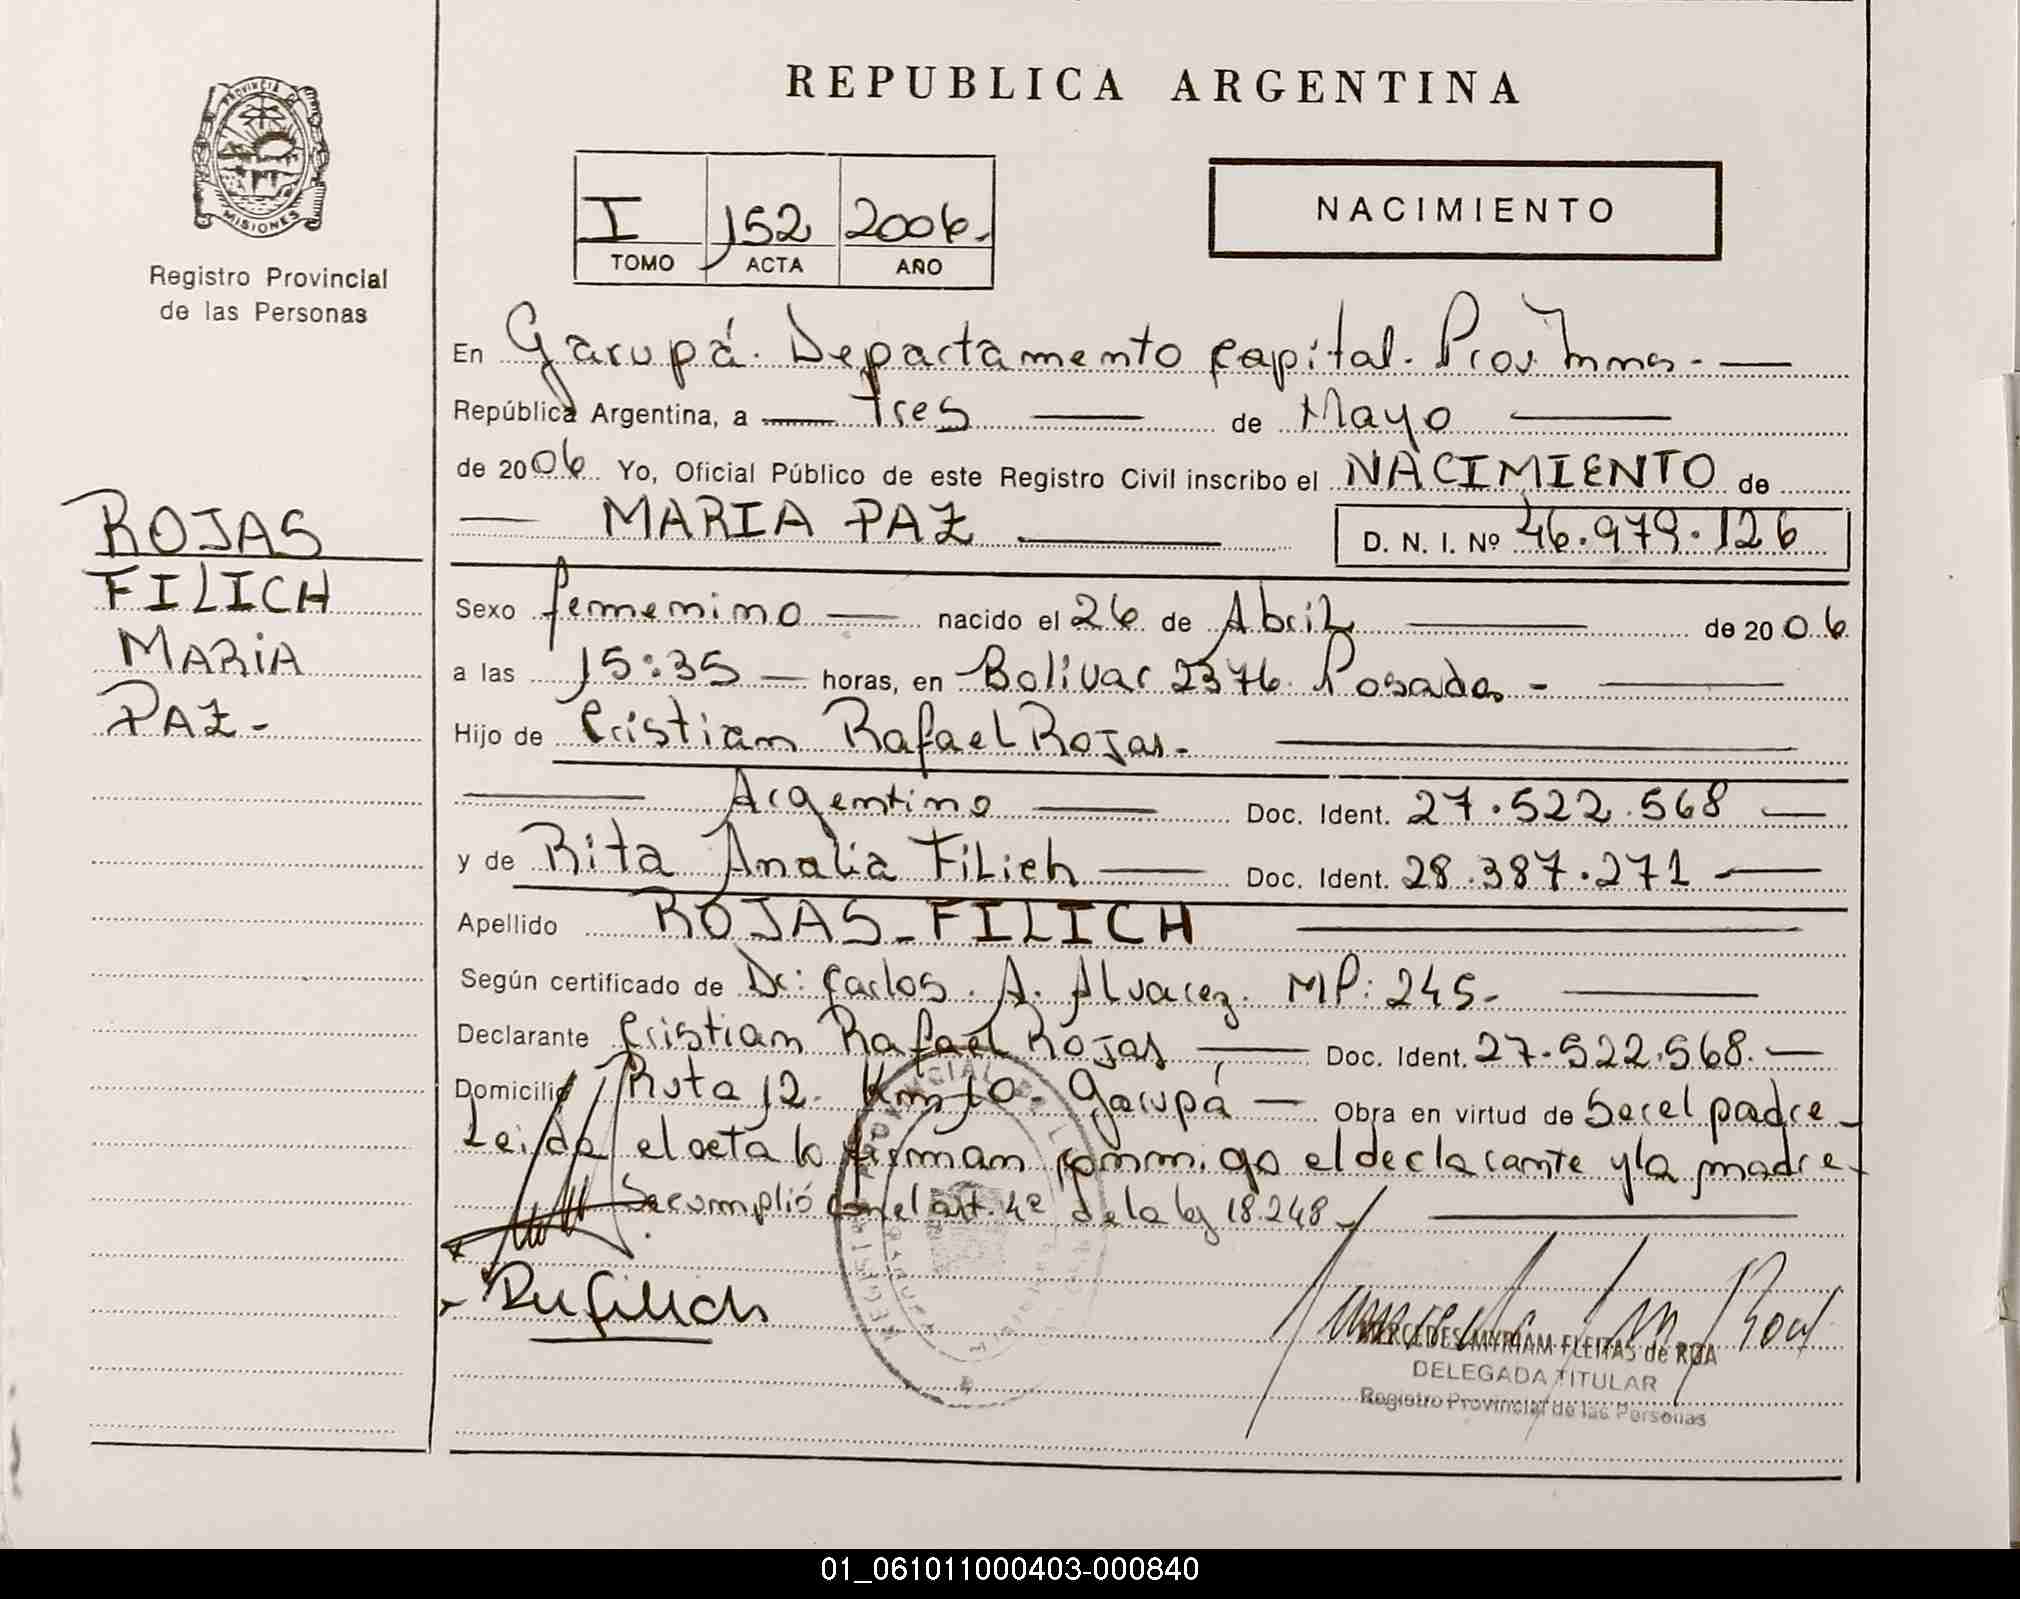 REPUBLICA ARGENTINA
PROVINCIA DE
MISIONES
Registro Provincial
de las Personas
I 152 2006.
TOMO ACTA AÑO
NACIMIENTO
En Garupá. Departamento Capital. Prov. Mnes. —
República Argentina, a — tres — de Mayo —
de 2006 Yo, Oficial Público de este Registro Civil inscribo el NACIMIENTO de
— MARIA PAZ — D. N. I. Nº 46.979.126
ROJAS
FILICH
MARIA
PAZ-
Sexo femenino — nacido el 26 de Abril — de 2006
a las 15:35 — horas, en Bolivar 2376. Posadas - —
Hijo de Cristian Rafael Rojas- —
— Argentino — Doc. Ident. 27.522.568 —
y de Rita Analia Filich — Doc. Ident. 28.387.271 —
Apellido ROJAS-FILICH —
Según certificado de Dr: Carlos. A. Alvarez. MP: 245- —
Declarante Cristian Rafael Rojas — Doc. Ident. 27.522.568. —
Domicilio Ruta 12. Km 10- Garupá — Obra en virtud de Ser el padre-
Leida el acta lo firman conmigo el declarante y la madre-
Se cumplió con el art. 4º de la ley 18.248- —
MERCEDES MYRIAM FLEITAS de ROA
DELEGADA TITULAR
Registro Provincial de las Personas
01_061011000403-000840